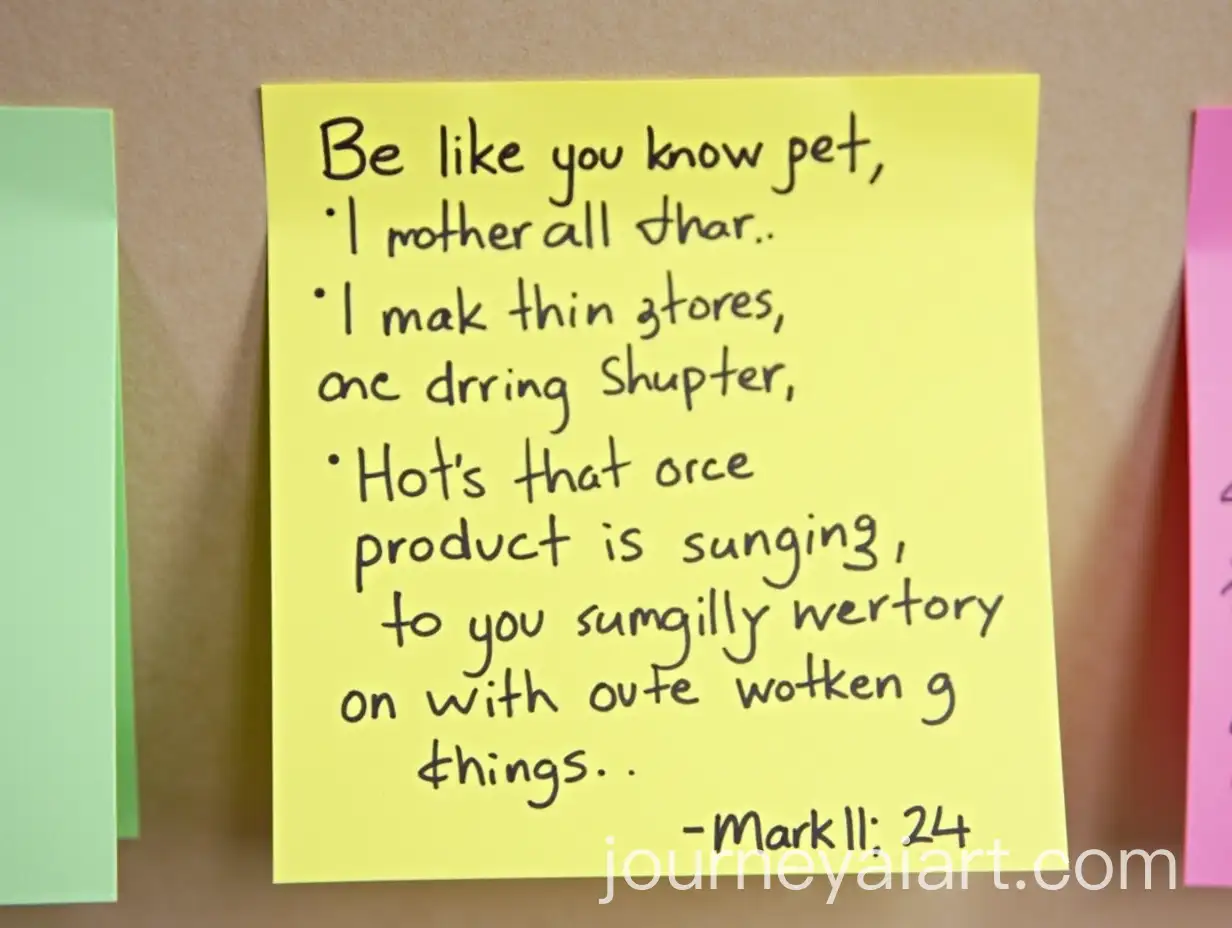 Be like you know pet,
·I mother all thar..
·I mak thin stores,
one drring Shupter,
·Hot's that orce
product is sunging,
to you sumgilly wertory
on with oute wotken g
things..
-Mark 11: 24
journeyaiart.com